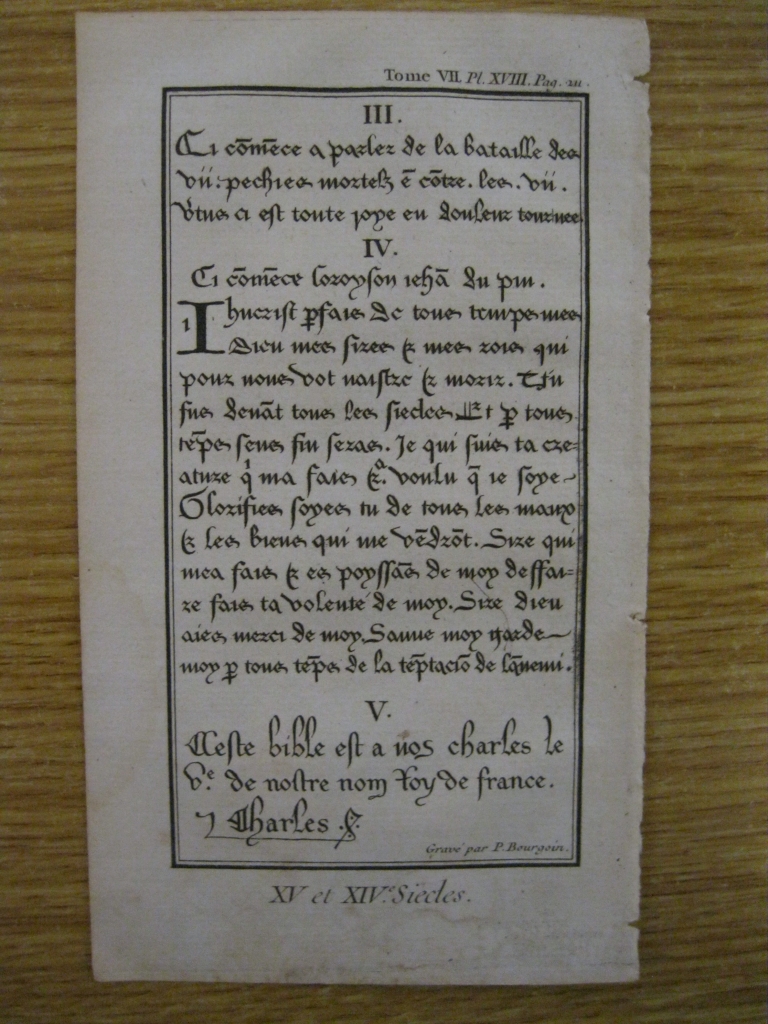 Tome VII. Pl. XVIII. Pag.
III.
Ci cōmēce a parler de la bataille des
vii. pechies mortelz ē cōtre. les. vii.
v̄tus ci est toute joye en douleur tournee
IV.
Ci cōmēce loroyson jehā du pin.
Ihucrist p̱fais de tous temps mes
Dieu mes sires & mes rois qui
pour nous vot naistre & morir. Tu
fus devāt tous les siecles Et p̱ tous
tēps sens fin seras. Je qui suis ta cre=
ature q̄ ma fais & voulu q̄ ie soye
Glorifies soyes tu de tous les maux
& les biens qui me vēdrōt. Sire qui
mea fais & es poyssās de moy deffai=
re fais ta volente de moy. Sire dieu
aies merci de moy. Sauve moy garde
moy p̱ tous tēps de la tēptaciō de lānemi.
V.
Ceste bible est a nos charles le
V.e de nostre nom Roy de france.
Charles
Gravé par P. Bourgoin.
XV et XIV.e Siecles.